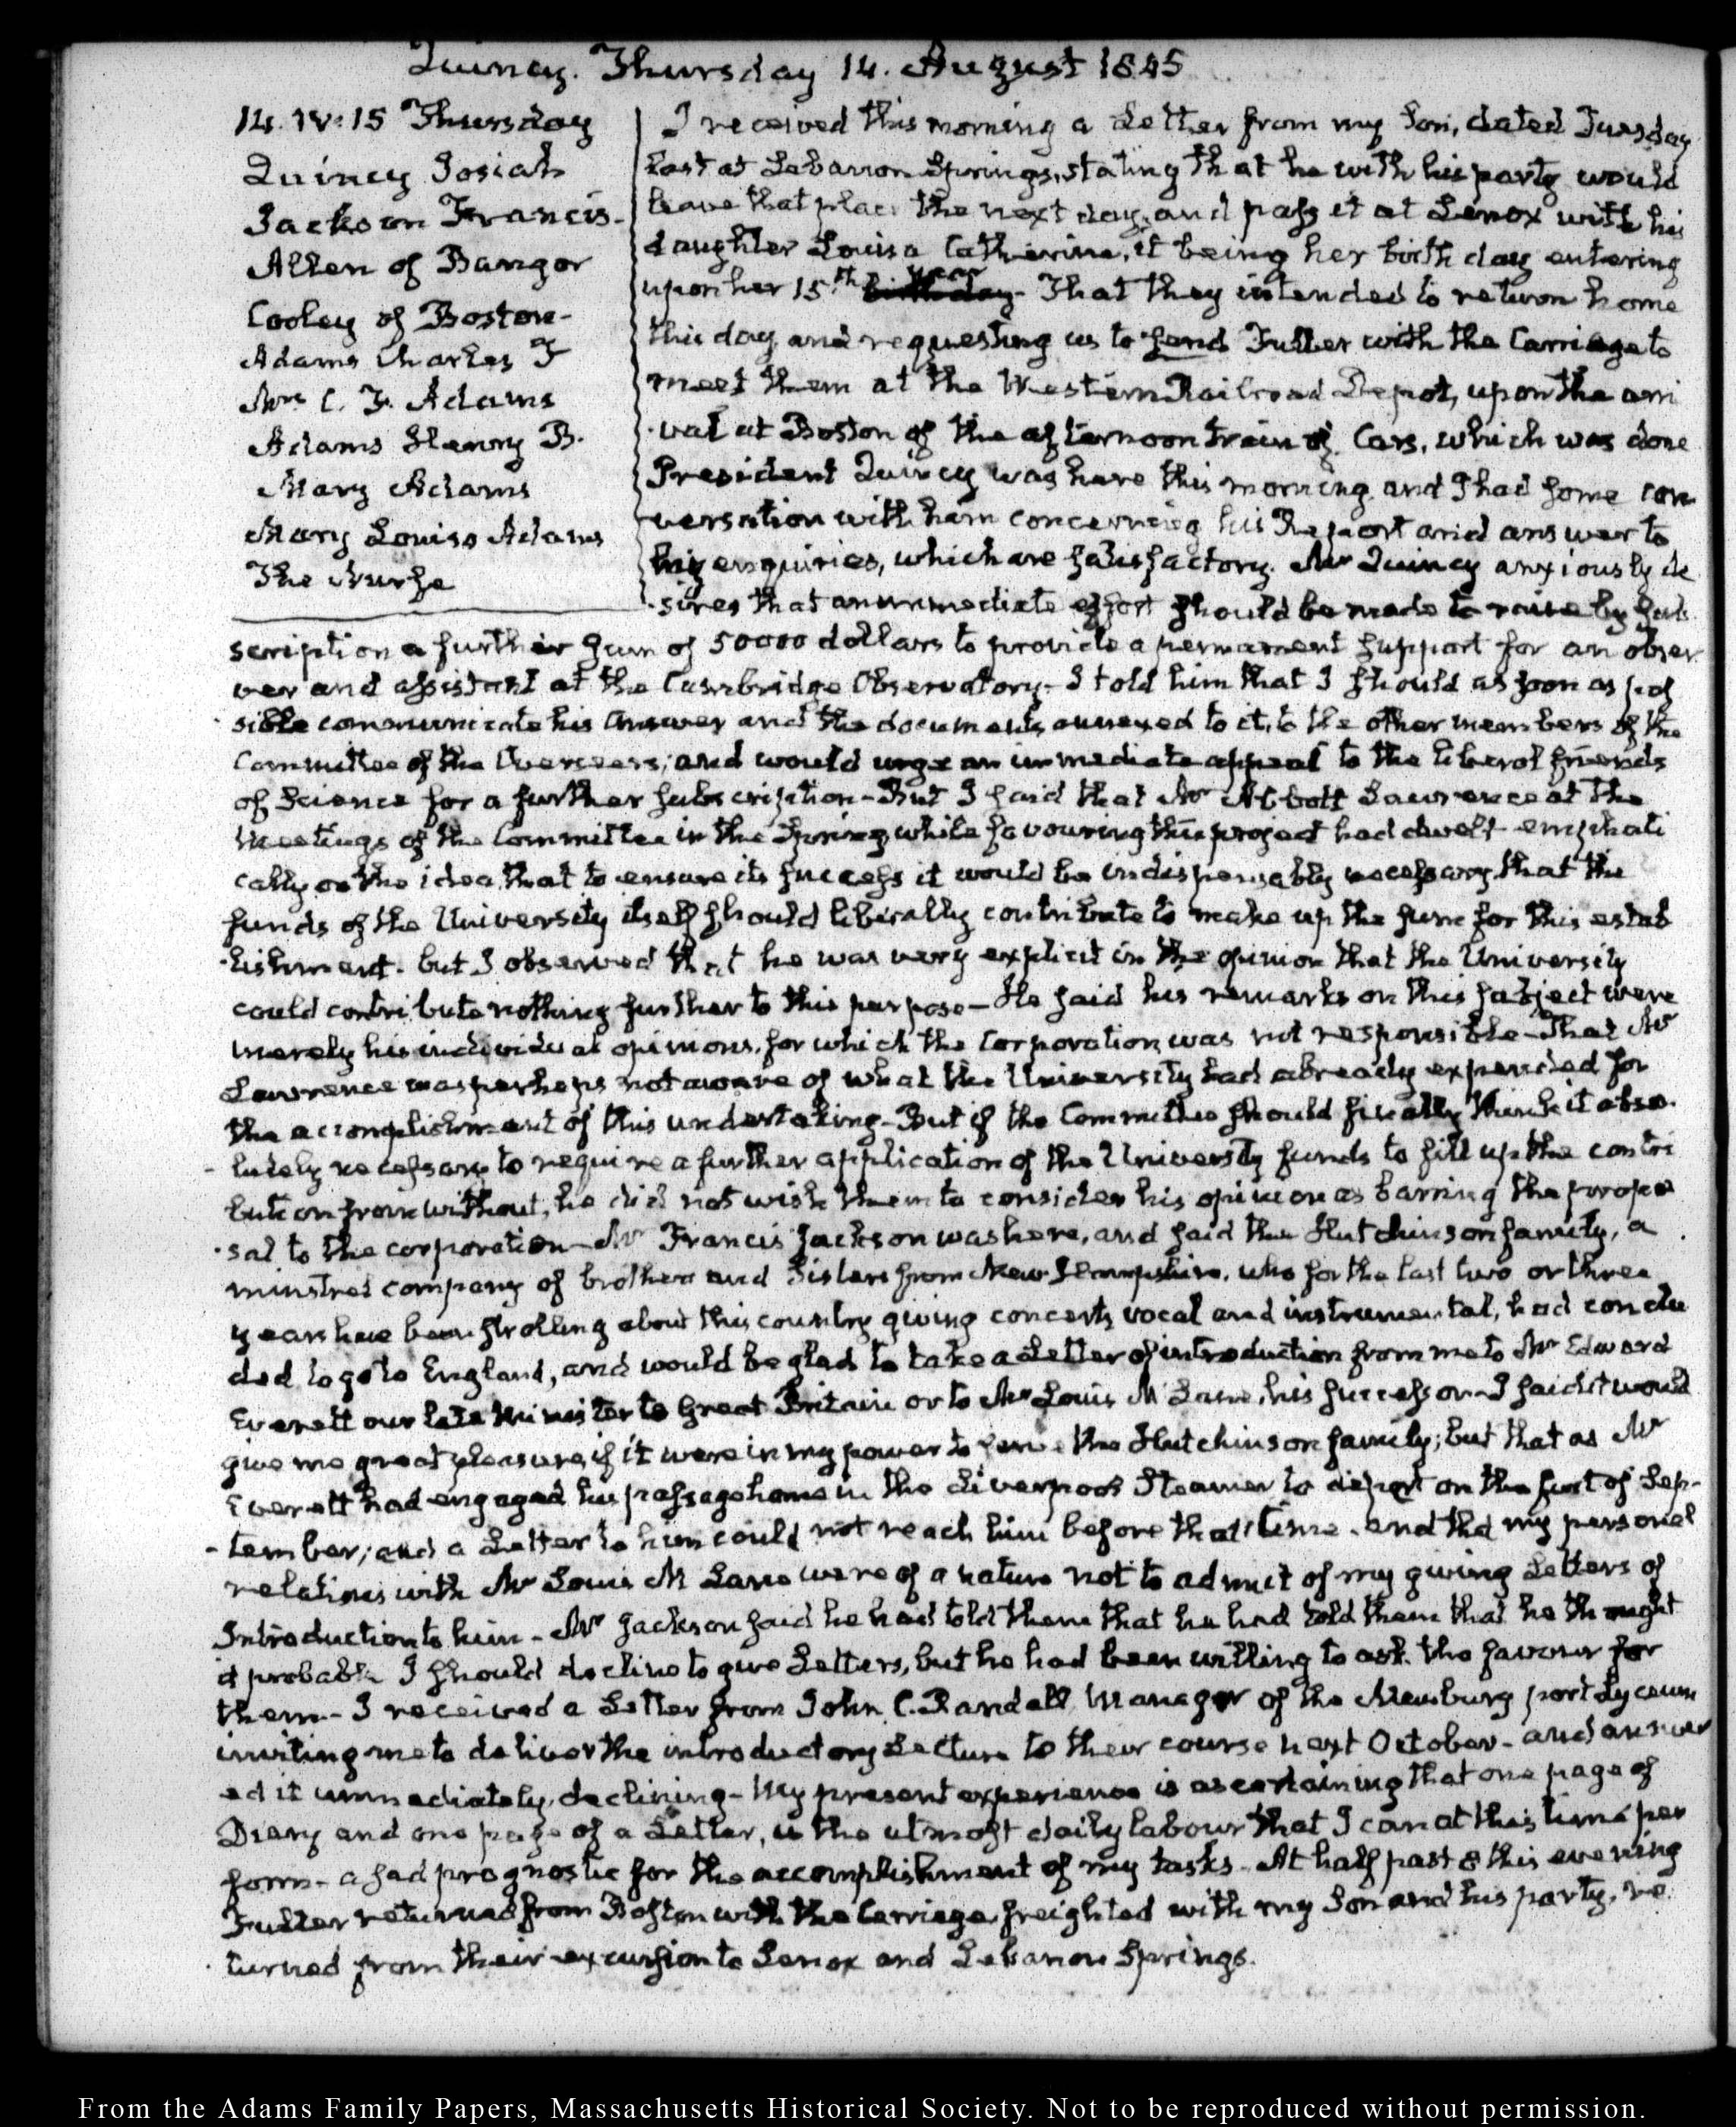 Quincy. Thursday 14. August 1845
14. IV:15 Thursday
Quincy Josiah
Jackson Francis-
Allen of Bangor
Cooley of Boston-
Adams Charles F
Mrs. C. F. Adams
Adams Henry B.
Mary Adams
Mary Louisa Adams
The Nurse
I received this morning a Letter from my Son, dated Tuesday
last at Lebanon Springs, stating that he with his party would
leave that place the next day, and pass it at Lenox with his
daughter Louisa Catherine, it being her birth day entering
upon her 15th. birth day year- That they intended to return home
this day, and requesting us to send Fuller with the Carriage to
meet them at the Western Railroad Depot, upon the arri
-val at Boston of the afternoon train of Cars, which was done
President Quincy was here this morning and I had some con
versation with him concerning his Report and answer to
my enquiries, which are satisfactory. Mr Quincy anxiously de
-sires that an immediate effort should be made to raise by sub
scription a further sum of 50000 dollars to provide a permanent support for an obser
ver and assistant at the Cambridge Observatory- I told him that I should as soon as pos
-sible communicate his answer and the documents annexed to it, to the other members of the
Committee of the Overseers; and would urge an immediate appeal to the liberal friends
of Science for a further subscription- But I said that Mr Abbott Lawrence at the
meetings of the Committee in the Spring while favouring this project had dwelt emphati
cally on the idea that to ensure its success it would be indispensably necessary that the
funds of the University itself should liberally contribute to make up the sum for this estab
-lishment. but I observed that he was very explicit in the opinion that the University
could contribute nothing further to this purpose- He said his remarks on this subject were
merely his individual opinions, for which the Corporation was not responsible- That Mr
Lawrence was perhaps not aware of what the University had already expended for
the accomplishment of this undertaking- But if the Committee should finally think it abso-
-lutely necessary to require a further application of the University funds to fill up the contri
bution from without, he did not wish them to consider his opinion as barring the propo
-sal to the corporation- Mr Francis Jackson was here, and said the Hutchinson family, a
minstrel company of brothers and Sisters from New Hampshire, who for the last two or three
years have been strolling about this country giving concerts vocal and instrumental, had conclu
ded to go to England, and would be glad to take a Letter of introduction from me to Mr Edward
Everett our late Minister to Great Britain or to Mr Louis McLane, his successor- I said it would
give me great pleasure, if it were in my power to serve the Hutchinson family; but that as Mr
Everett had engaged his passage home in the Liverpool Steamer to depart on the first of Sep-
-tember; and a Letter to him could not reach him before that time. and that my personal
relations with Mr Louis McLane were of a nature not to admit of my giving Letters of
Introduction to him- Mr Jackson said he had told them that he had told them that he thought
it probable I should decline to give Letters, but he had been willing to ask the favour for
them- I received a Letter from John C. Randall Manager of the Newburyport Lyceum
inviting me to deliver the introductory Lecture to their course next October- and answer
ed it immediately, declining- My present experience is ascertaining that one page of
Diary and one page of a Letter, is the utmost daily labour that I can at this time per
form- a sad prognostic for the accomplishment of my tasks- At half past 8 this evening
Fuller returned from Boston with the Carriage, freighted with my Son and his party, re
-turned from their excursion to Lenox and Lebanon Springs.
From the Adams Family Papers, Massachusetts Historical Society. Not to be reproduced without permission.